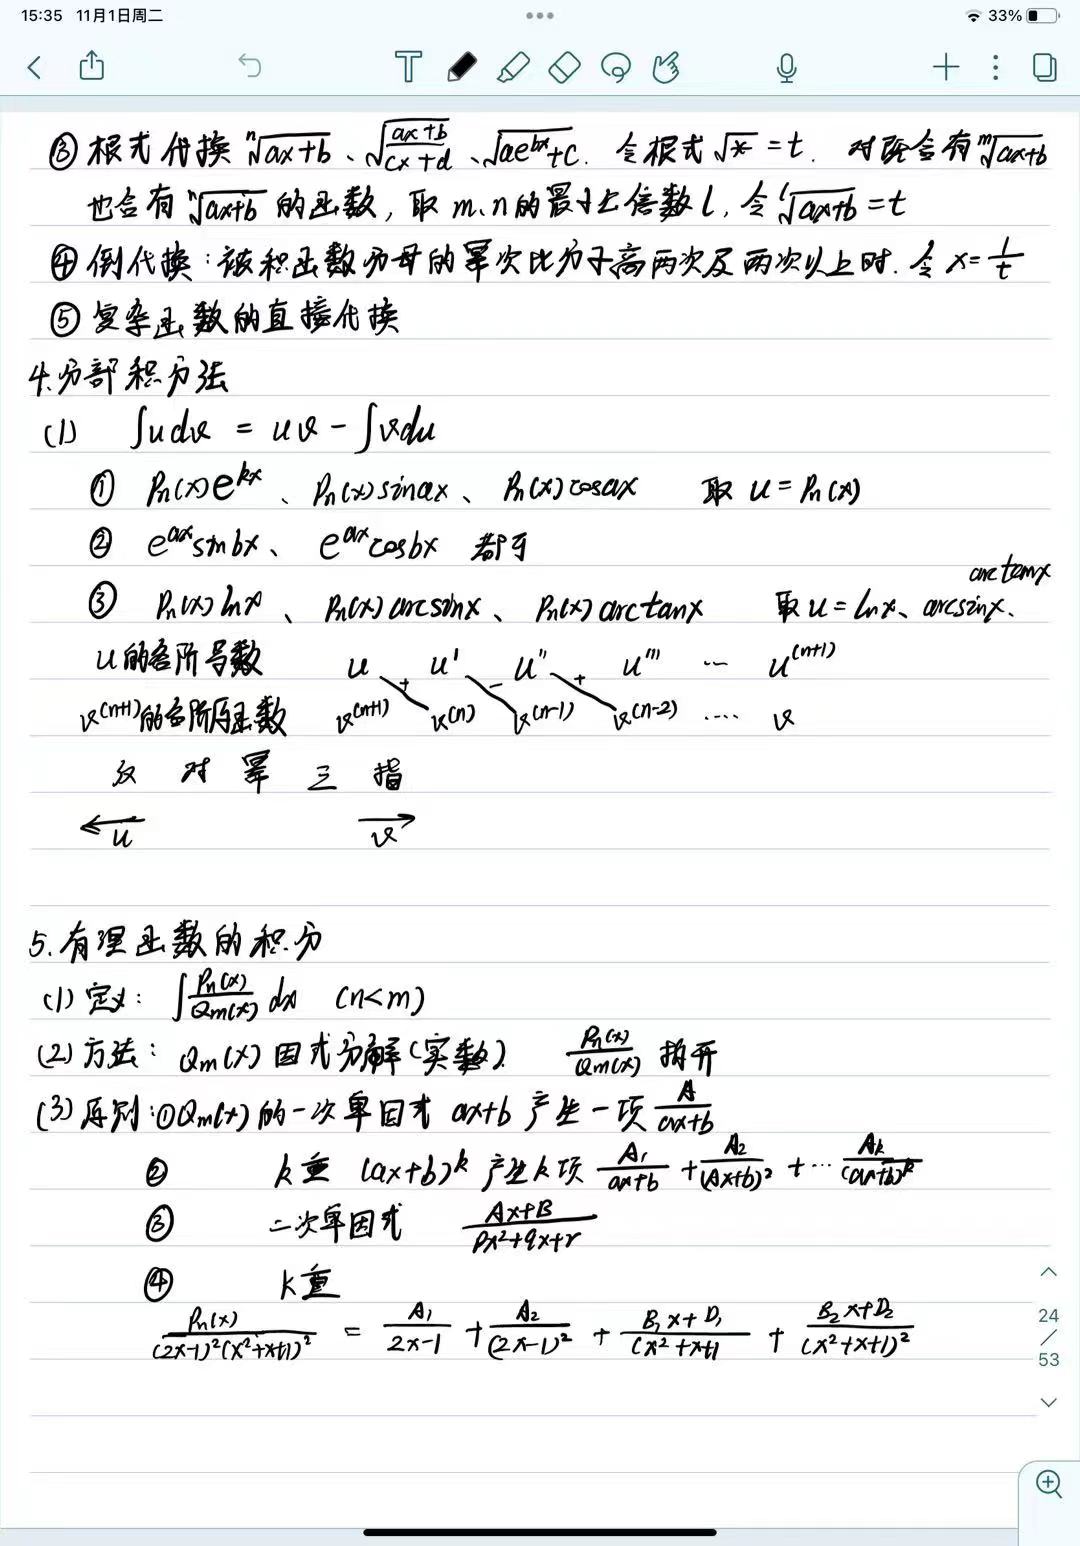 15:35 11月1日周二
33%
③ 根式代换 ⁿ√(ax+b)、√((ax+b)/(cx+d))、√(ae^(bx)+c). 令根式 √* = t. 对既含有 ᵐ√(ax+b)
也含有 ⁿ√(ax+b) 的函数, 取 m、n的最小公倍数 l, 令 ˡ√(ax+b) = t
④ 倒代换: 该积函数分母的幂次比分子高两次及两次以上时. 令 x = 1/t
⑤ 复杂函数的直接代换
4.分部积分法
(1) ∫udv = uv - ∫vdu
① Pn(x)e^(kx)、Pn(x)sinax、Pn(x)cosax 取 u = Pn(x)
② e^(ax)sinbx、e^(ax)cosbx 都可
③ Pn(x)lnx、Pn(x)arcsinx、Pn(x)arctanx 取 u = lnx、arcsinx、arctanx
u的各阶导数 u + u' - u'' + u''' … u^(n+1)
v^(n+1)的各阶原函数 v^(n+1) v^(n) v^(n-1) v^(n-2) …. v
反 对 幂 三 指
← u v →
5.有理函数的积分
(1) 定义: ∫ Pn(x)/Qm(x) dx (n<m)
(2) 方法: Qm(x) 因式分解(实数). Pn(x)/Qm(x) 拆开
(3) 原则: ①Qm(x)的一次单因式 ax+b 产生一项 A/(ax+b)
② k重 (ax+b)^k 产生k项 A₁/(ax+b) + A₂/(Ax+b)² + … Ak/(ax+b)^k
③ 二次单因式 (Ax+B)/(Px²+qx+r)
④ k重
Pn(x)/((2x-1)²(x²+x+1)²) = A₁/(2x-1) + A₂/(2x-1)² + (B₁x+D₁)/(x²+x+1 + (B₂x+D₂)/(x²+x+1)²
24
/
53